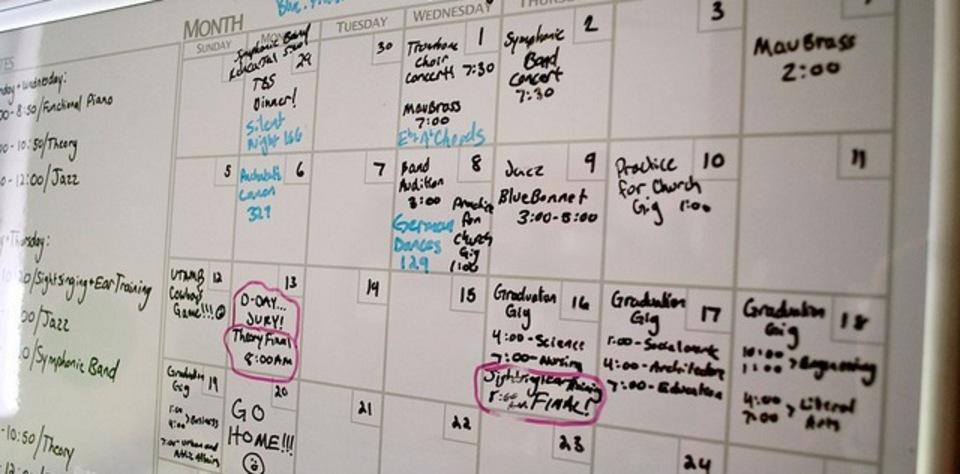 MONTH
SUNDAY
TUESDAY
WEDNESDAY
Symphonic Band
Rehearsal
29
TBS
Dinner!
Silent
Night 166
30
1
Trombone
Choir
Concert! 7:30
MavBrass
7:00
Eb+Ab Chords
2
Symphonic
Band
Concert
7:30
3
MavBrass
2:00
5
6
Canon
329
7
8
Band
Audition
3:00
German
Dances
129
Practice
for
Church
Gig
1:00
9
Jazz
BlueBonnet
3:00-5:00
10
Practice
for Church
Gig 1:00
11
12
Cowboy
Game!!!
13
D-DAY...
JURY!
Theory Final
8:00AM
14
15
16
Graduation
Gig
4:00-Science
7:00-Nursing
FINAL!
17
Graduation
Gig
1:00-Social work
4:00-Architecture
7:00-Education
18
Graduation
Gig
10:00
1:00 > Engineering
4:00
7:00 > Liberal
Arts
19
Graduation
Gig
1:00
4:00 > Business
7:00-Urban and
Public Affairs
20
GO
HOME!!!
21
22
23
24
-8:50/Functional Piano
10:50/Theory
-12:00/Jazz
Thursday:
/Sightsinging+Ear Training
/Jazz
/Symphonic Band
-10:50/Theory